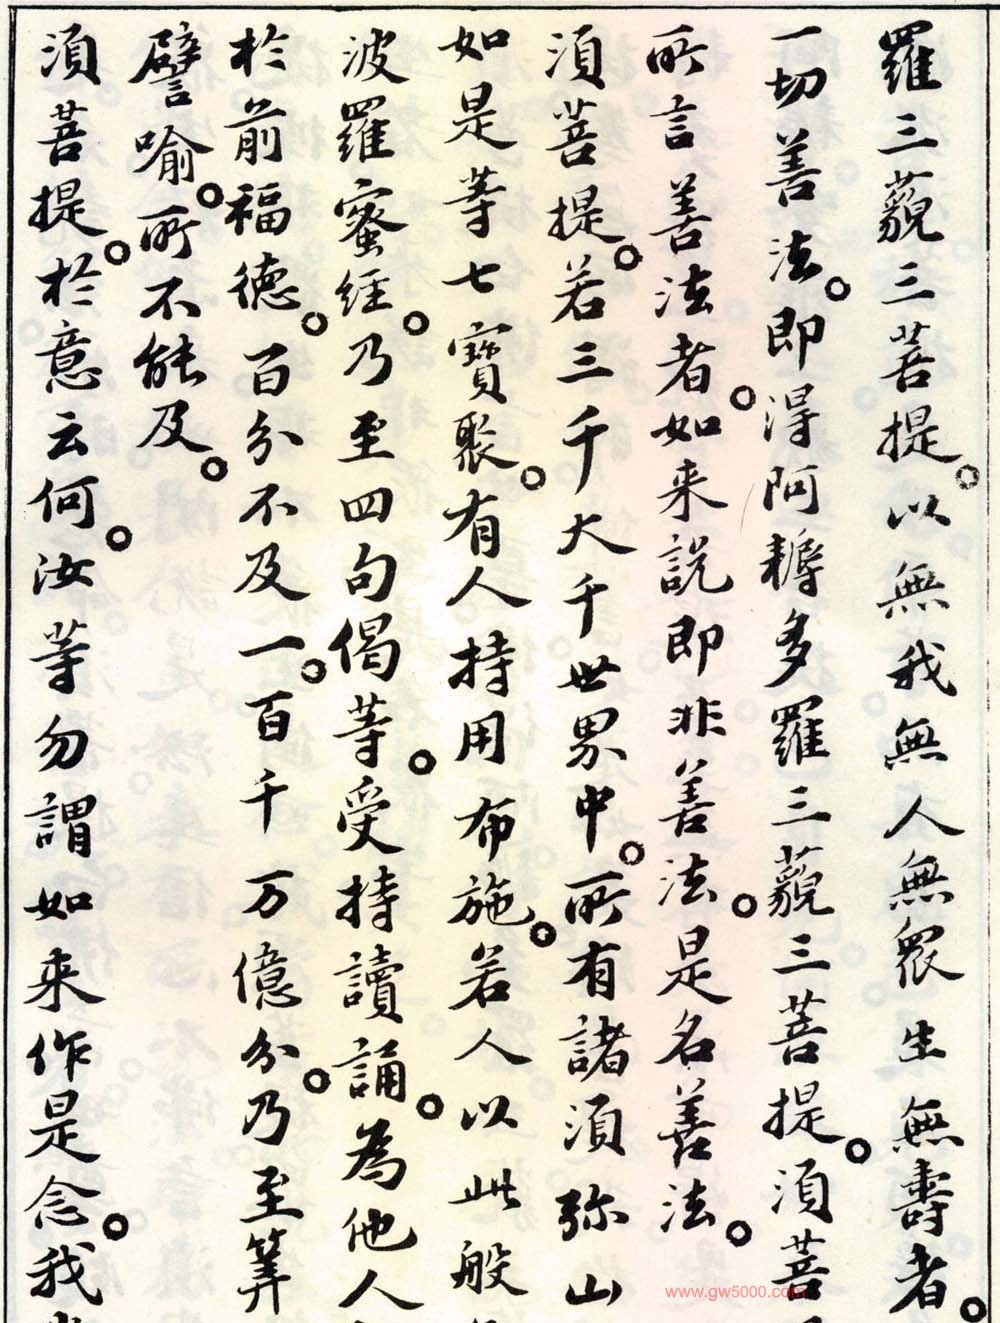 羅三藐三菩提。以無我無人無眾生無壽者。
一切善法。即得阿耨多羅三藐三菩提。須菩
所言善法者。如来説即非善法。是名善法。
須菩提。若三千大千世界中。所有諸須弥山
如是等七寶聚。有人持用布施。若人以此般
波羅蜜經。乃至四句偈等。受持讀誦。為他人
於前福德。百分不及一。百千万億分。乃至筭
譬喻。所不能及。
須菩提。於意云何。汝等勿謂如来作是念。我
www.gw5000.com